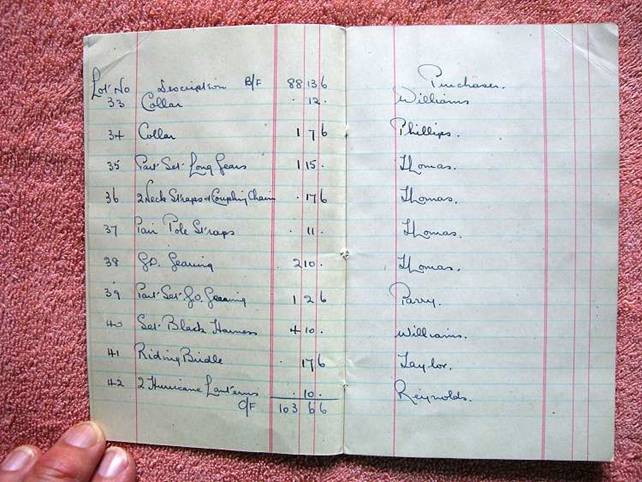 Lot No Description B/F 88 13 6 Purchaser.
33 Collar . 12 . Williams
34 Collar 1 7 6 Phillips.
35 Part Set Long Gears 1 15 . Thomas.
36 2 Neck Straps & Coupling Chain . 17 6 Thomas.
37 Pair Pole Straps . 11 . Thomas.
38 G.O. Gearing 2 10 . Thomas.
39 Part Set G.O. Gearing 1 2 6 Parry.
40 Set Black Harness 4 10 . Williams.
41 Riding Bridle . 17 6 Taylor.
42 2 Hurricane Lanterns . 10 . Reynolds.
C/F 103 6 6